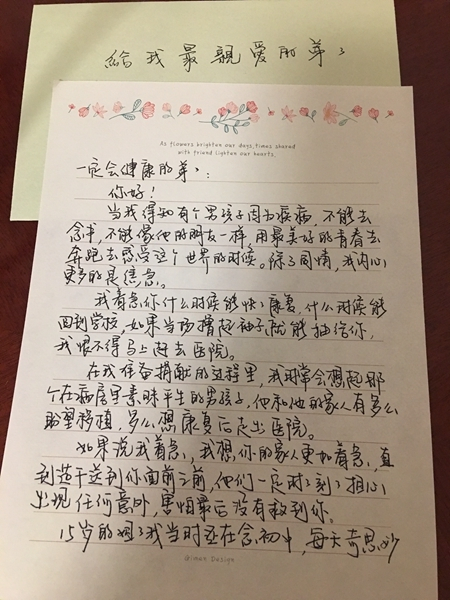 給我最親爱的弟弟
As flowers brighten our days, times shared
with friend lighten our hearts.
一定会健康的弟弟:
你好!
当我得知有个男孩子因为疾病,不能去
念书,不能像他的朋友一样,用最美好的青春去
奔跑去感受这个世界的时候。除了同情,我内心
更多的是焦急。
我着急你什么时候能快快康复,什么时候能
回到学校,如果当场撸起袖子就能抽给你,
我恨不得马上赶去医院。
在我准备捐献的过程里,我时常会想起那
个在病房里素昧平生的男孩子,他和他的家人有多么
盼望移植,多么想康复后走出医院。
如果说我着急,我想你的家人更加着急,直
到造干送到你面前之前,他们一定时时刻刻担心
出现任何意外,害怕最后没有救到你。
15岁的姐姐我当时还在念初中,每天奇思妙
@imen Design